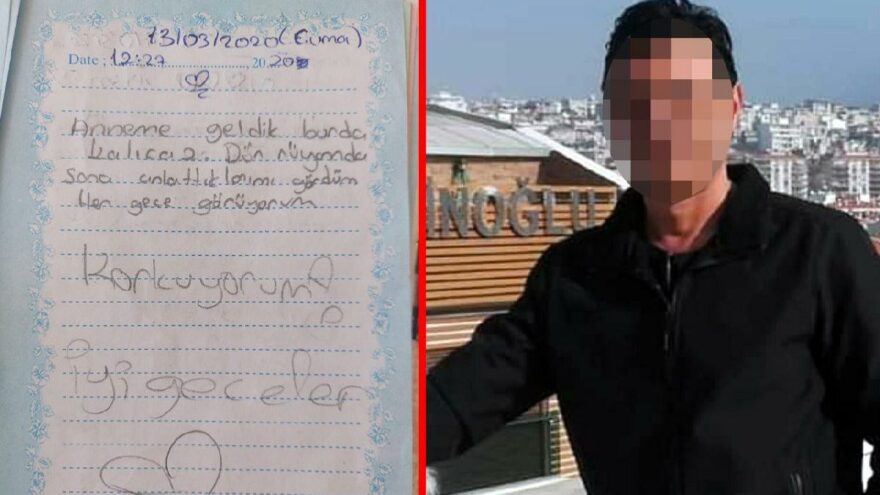 13/03/2020 (Cuma)
Date : 12:27 20 20
Anneme geldik burda
kalıcaz. Dün rüyamda
sana anlattıklarımı gördüm
Her gece görüyorum
Korkuyorum
İyi geceler
İNOĞLU